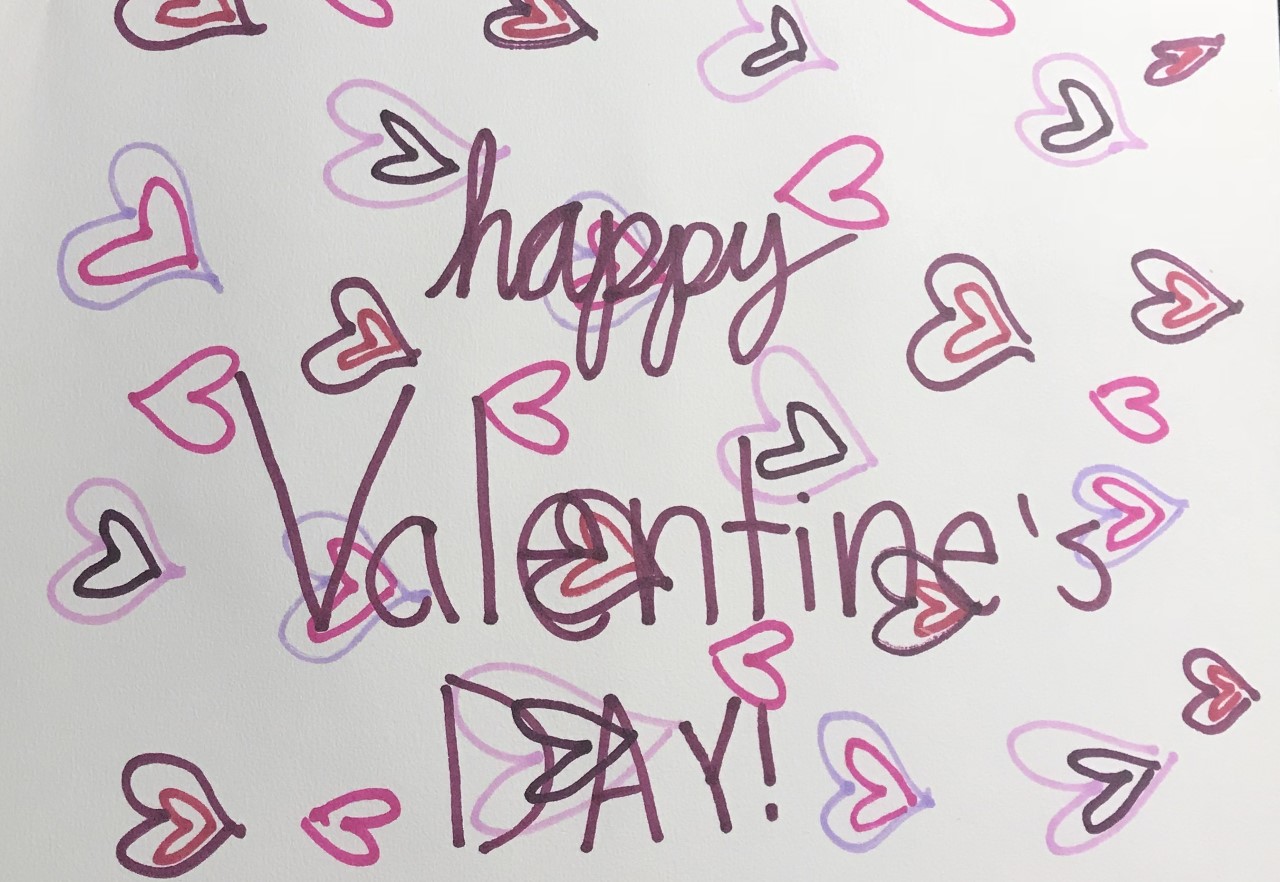 happy
Valentine's
DAY!